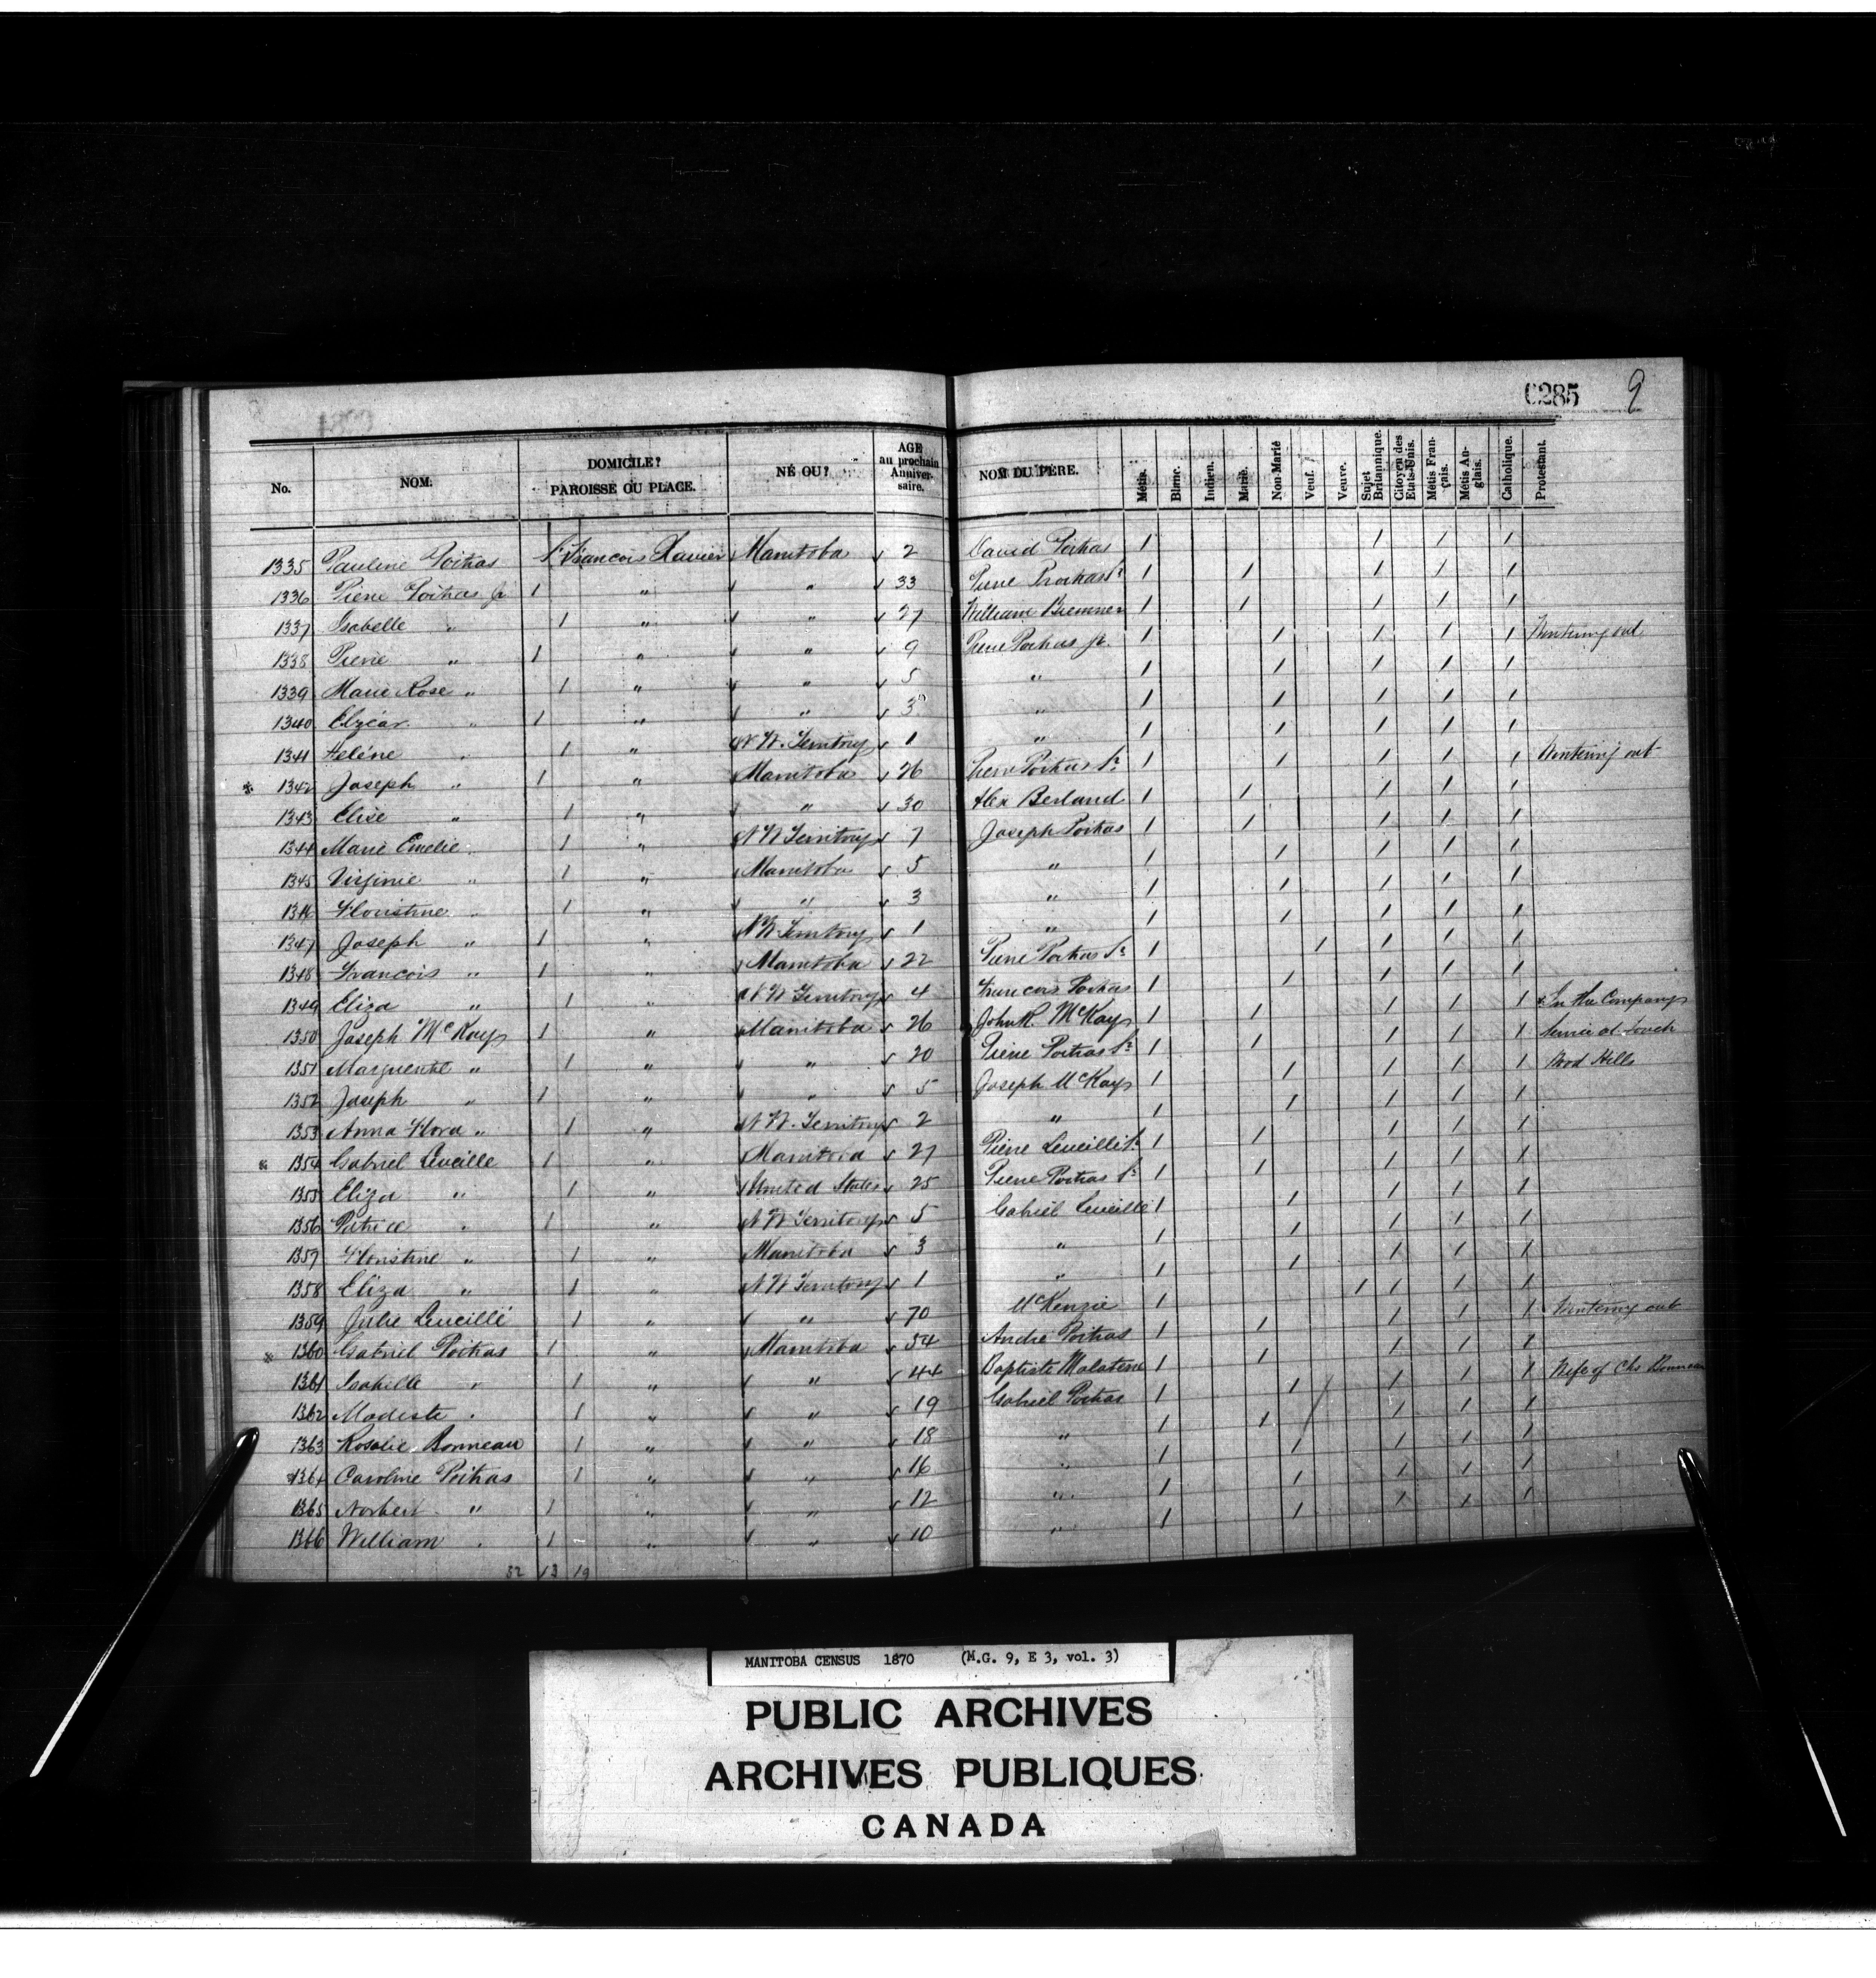 0285 9
No. NOM. DOMICILE? PAROISSE OU PLACE. NÉ OU? AGE au prochain Anniversaire. NOM DU PÈRE. Métis. Blanc. Indien. Marié. Non-Marié Veuf. Veuve. Sujet Britannique. Citoyen des Etats-Unis. Métis Français. Métis Anglais. Catholique. Protestant.
1335 Pauline Poitras St Francois Xavier Manitoba 2 David Poitras 1 1 1 1
1336 Pierre Poitras Jr 1 " " 33 Pierre Poitras Sr 1 1 1 1 1
1337 Isabelle " 1 " " 27 William Bremner 1 1 1 1 1
1338 Pierre " 1 " " 9 Pierre Poitras Jr. 1 1 1 1 1 Wintering out
1339 Marie Rose " 1 " " 5 " 1 1 1 1 1
1340 Elzéar " 1 " " 3 " 1 1 1 1 1
1341 Heléne " 1 " N.W. Territory 1 " 1 1 1 1 1
1342 Joseph " 1 " Manitoba 26 Pierre Poitras Sr 1 1 1 1 1 Wintering out
1343 Elise " 1 " " 30 Alex Berland 1 1 1 1 1
1344 Marie Emelie " 1 " N W Territory 7 Joseph Poitras 1 1 1 1 1
1345 Virginie " 1 " Manitoba 5 " 1 1 1 1 1
1346 Floristine " 1 " " 3 " 1 1 1 1 1
1347 Joseph " 1 " N W Territory 1 " 1 1 1 1 1
1348 Francois " 1 " Manitoba 22 Pierre Poitras Sr 1 1 1 1 1
1349 Eliza " 1 " N W Territory 4 Francois Poitras 1 1 1 1 1
1350 Joseph McKay 1 " Manitoba 26 John R. McKay 1 1 1 1 1 In the Company
1351 Marguerite " 1 " " 20 Pierre Poitras Sr 1 1 1 1 1 Service at Touch
1352 Joseph " 1 " " 5 Joseph McKay 1 1 1 1 1 Wood Hills
1353 Anna Flora " 1 " N.W. Territory 2 " 1 1 1 1 1
1354 Gabriel Leveille 1 " Manitoba 27 Pierre Leveille Sr 1 1 1 1 1
1355 Eliza " 1 " United States 25 Pierre Poitras Sr 1 1 1 1 1
1356 Patrice " 1 " N W Territory 5 Gabriel Leveille 1 1 1 1 1
1357 Floristine " 1 " Manitoba 3 " 1 1 1 1 1
1358 Eliza " 1 " N W Territory 1 " 1 1 1 1 1
1359 Julie Leveillé 1 " " 70 McKenzie 1 1 1 1 1
1360 Gabriel Poitras 1 " Manitoba 54 André Poitras 1 1 1 1 1 Wintering out
1361 Isabelle " 1 " " 44 Baptiste Malaterre 1 1 1 1 1
1362 Modeste " 1 " " 19 Gabriel Poitras 1 1 1 1 1 Wife of Chs Bonneau
1363 Rosalie Bonneau 1 " " 18 " 1 1 1 1 1
1364 Caroline Poitras 1 " " 16 " 1 1 1 1 1
1365 Norbert " 1 " " 12 " 1 1 1 1 1
1366 William " 1 " " 10 " 1 1 1 1 1
32 13 19
MANITOBA CENSUS 1870 (M.G. 9, E 3, vol. 3)
PUBLIC ARCHIVES
ARCHIVES PUBLIQUES
CANADA